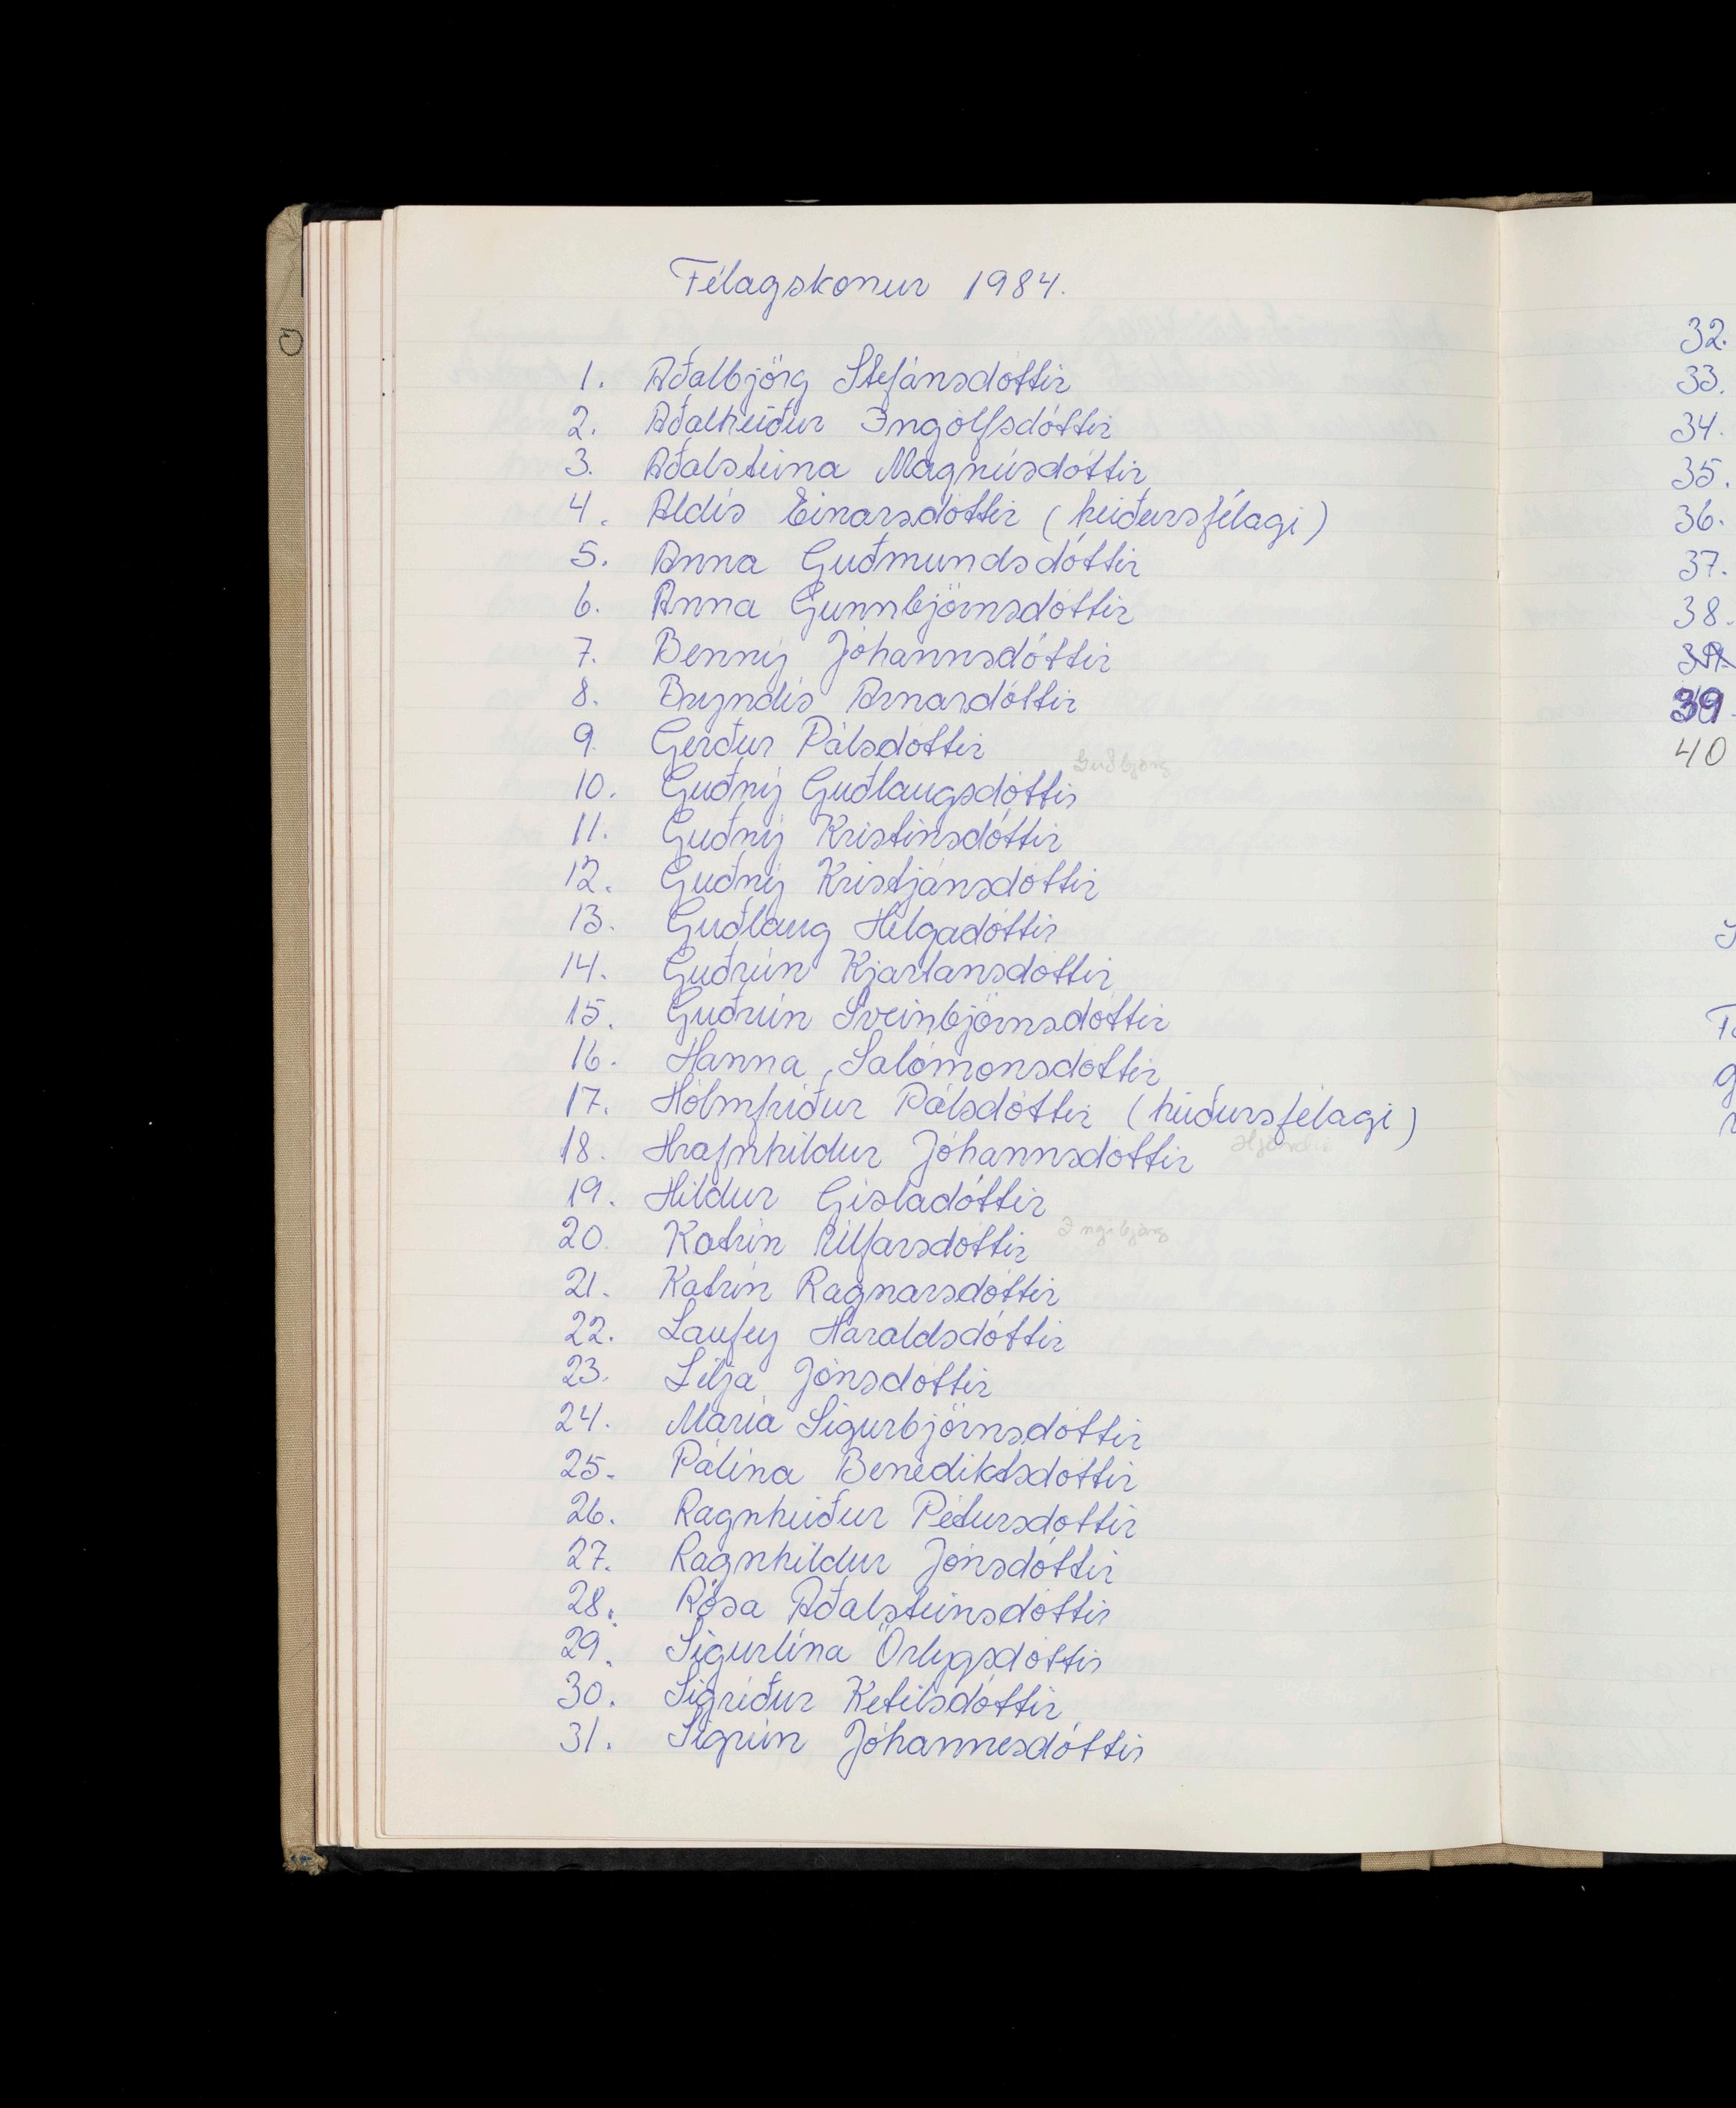 Félagskonur 1984.
1. Aðalbjörg Stefánsdóttir
2. Aðalheiður Ingólfsdóttir
3. Aðalsteina Magnúsdóttir
4. Aldís Einarsdóttir (heiðursfélagi)
5. Anna Guðmundsdóttir
6. Anna Gunnbjörnsdóttir
7. Benný Jóhannsdóttir
8. Bryndís Arnardóttir
9. Gerður Pálsdóttir
Guðbjörg
10. Guðný Guðlaugsdóttir
11. Guðný Kristinsdóttir
12. Guðný Kristjánsdóttir
13. Guðlaug Helgadóttir
14. Guðrún Kjartansdóttir
15. Guðrún Sveinbjörnsdóttir
16. Hanna Salómonsdóttir
17. Hólmfríður Pálsdóttir (heiðursfélagi)
18. Hrafnhildur Jóhannsdóttir
19. Hildur Gísladóttir
Ingibjörg
20. Katrín Úlfarsdóttir
21. Katrín Ragnarsdóttir
22. Laufey Haraldsdóttir
23. Lilja Jónsdóttir
24. María Sigurbjörnsdóttir
25. Pálína Benediktsdóttir
26. Ragnheiður Pétursdóttir
27. Ragnhildur Jónsdóttir
28. Rósa Aðalsteinsdóttir
29. Sigurlína Örlygsdóttir
30. Sigríður Ketilsdóttir
31. Sigrún Jóhannesdóttir
32.
33.
34.
35.
36.
37.
38.
39.
40